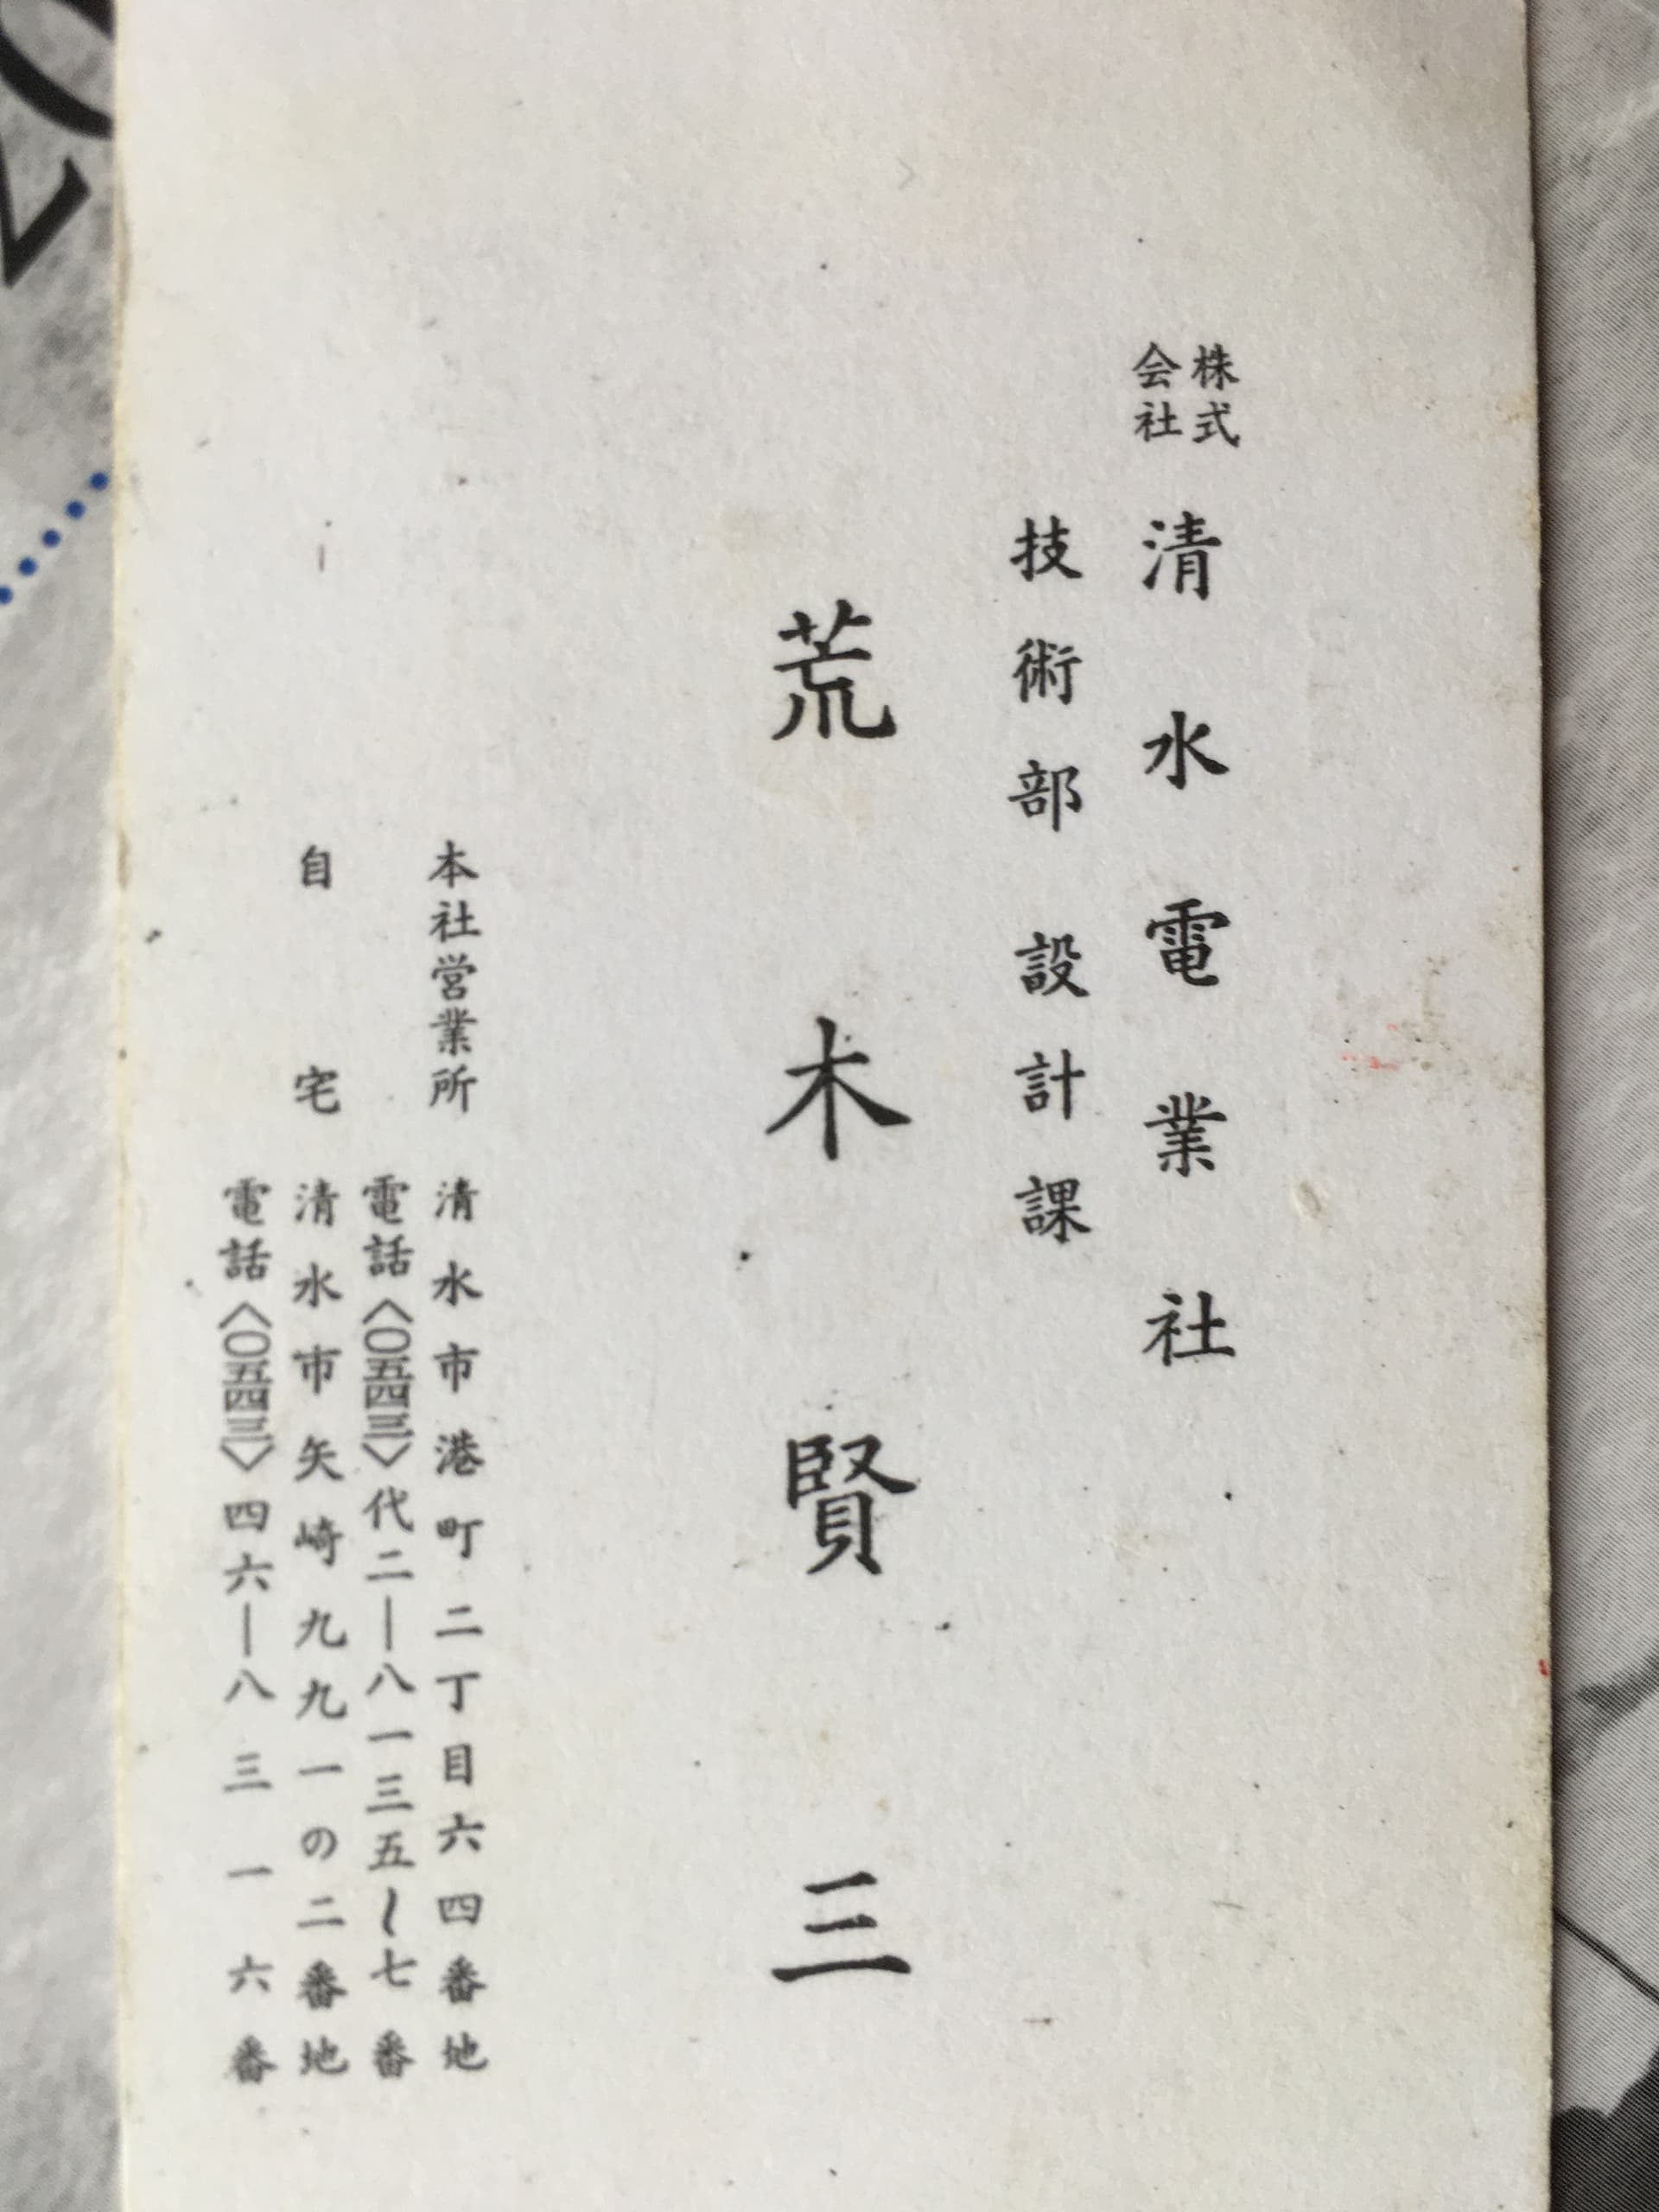 株式会社 清水電業社
技術部 設計課
荒木賢三
本社営業所 清水市港町二丁目六四番地
電話〈〇五四三〉代二―八一三五〜七番
自宅 清水市矢崎九九一の二番地
電話〈〇五四三〉四六―八三一六番